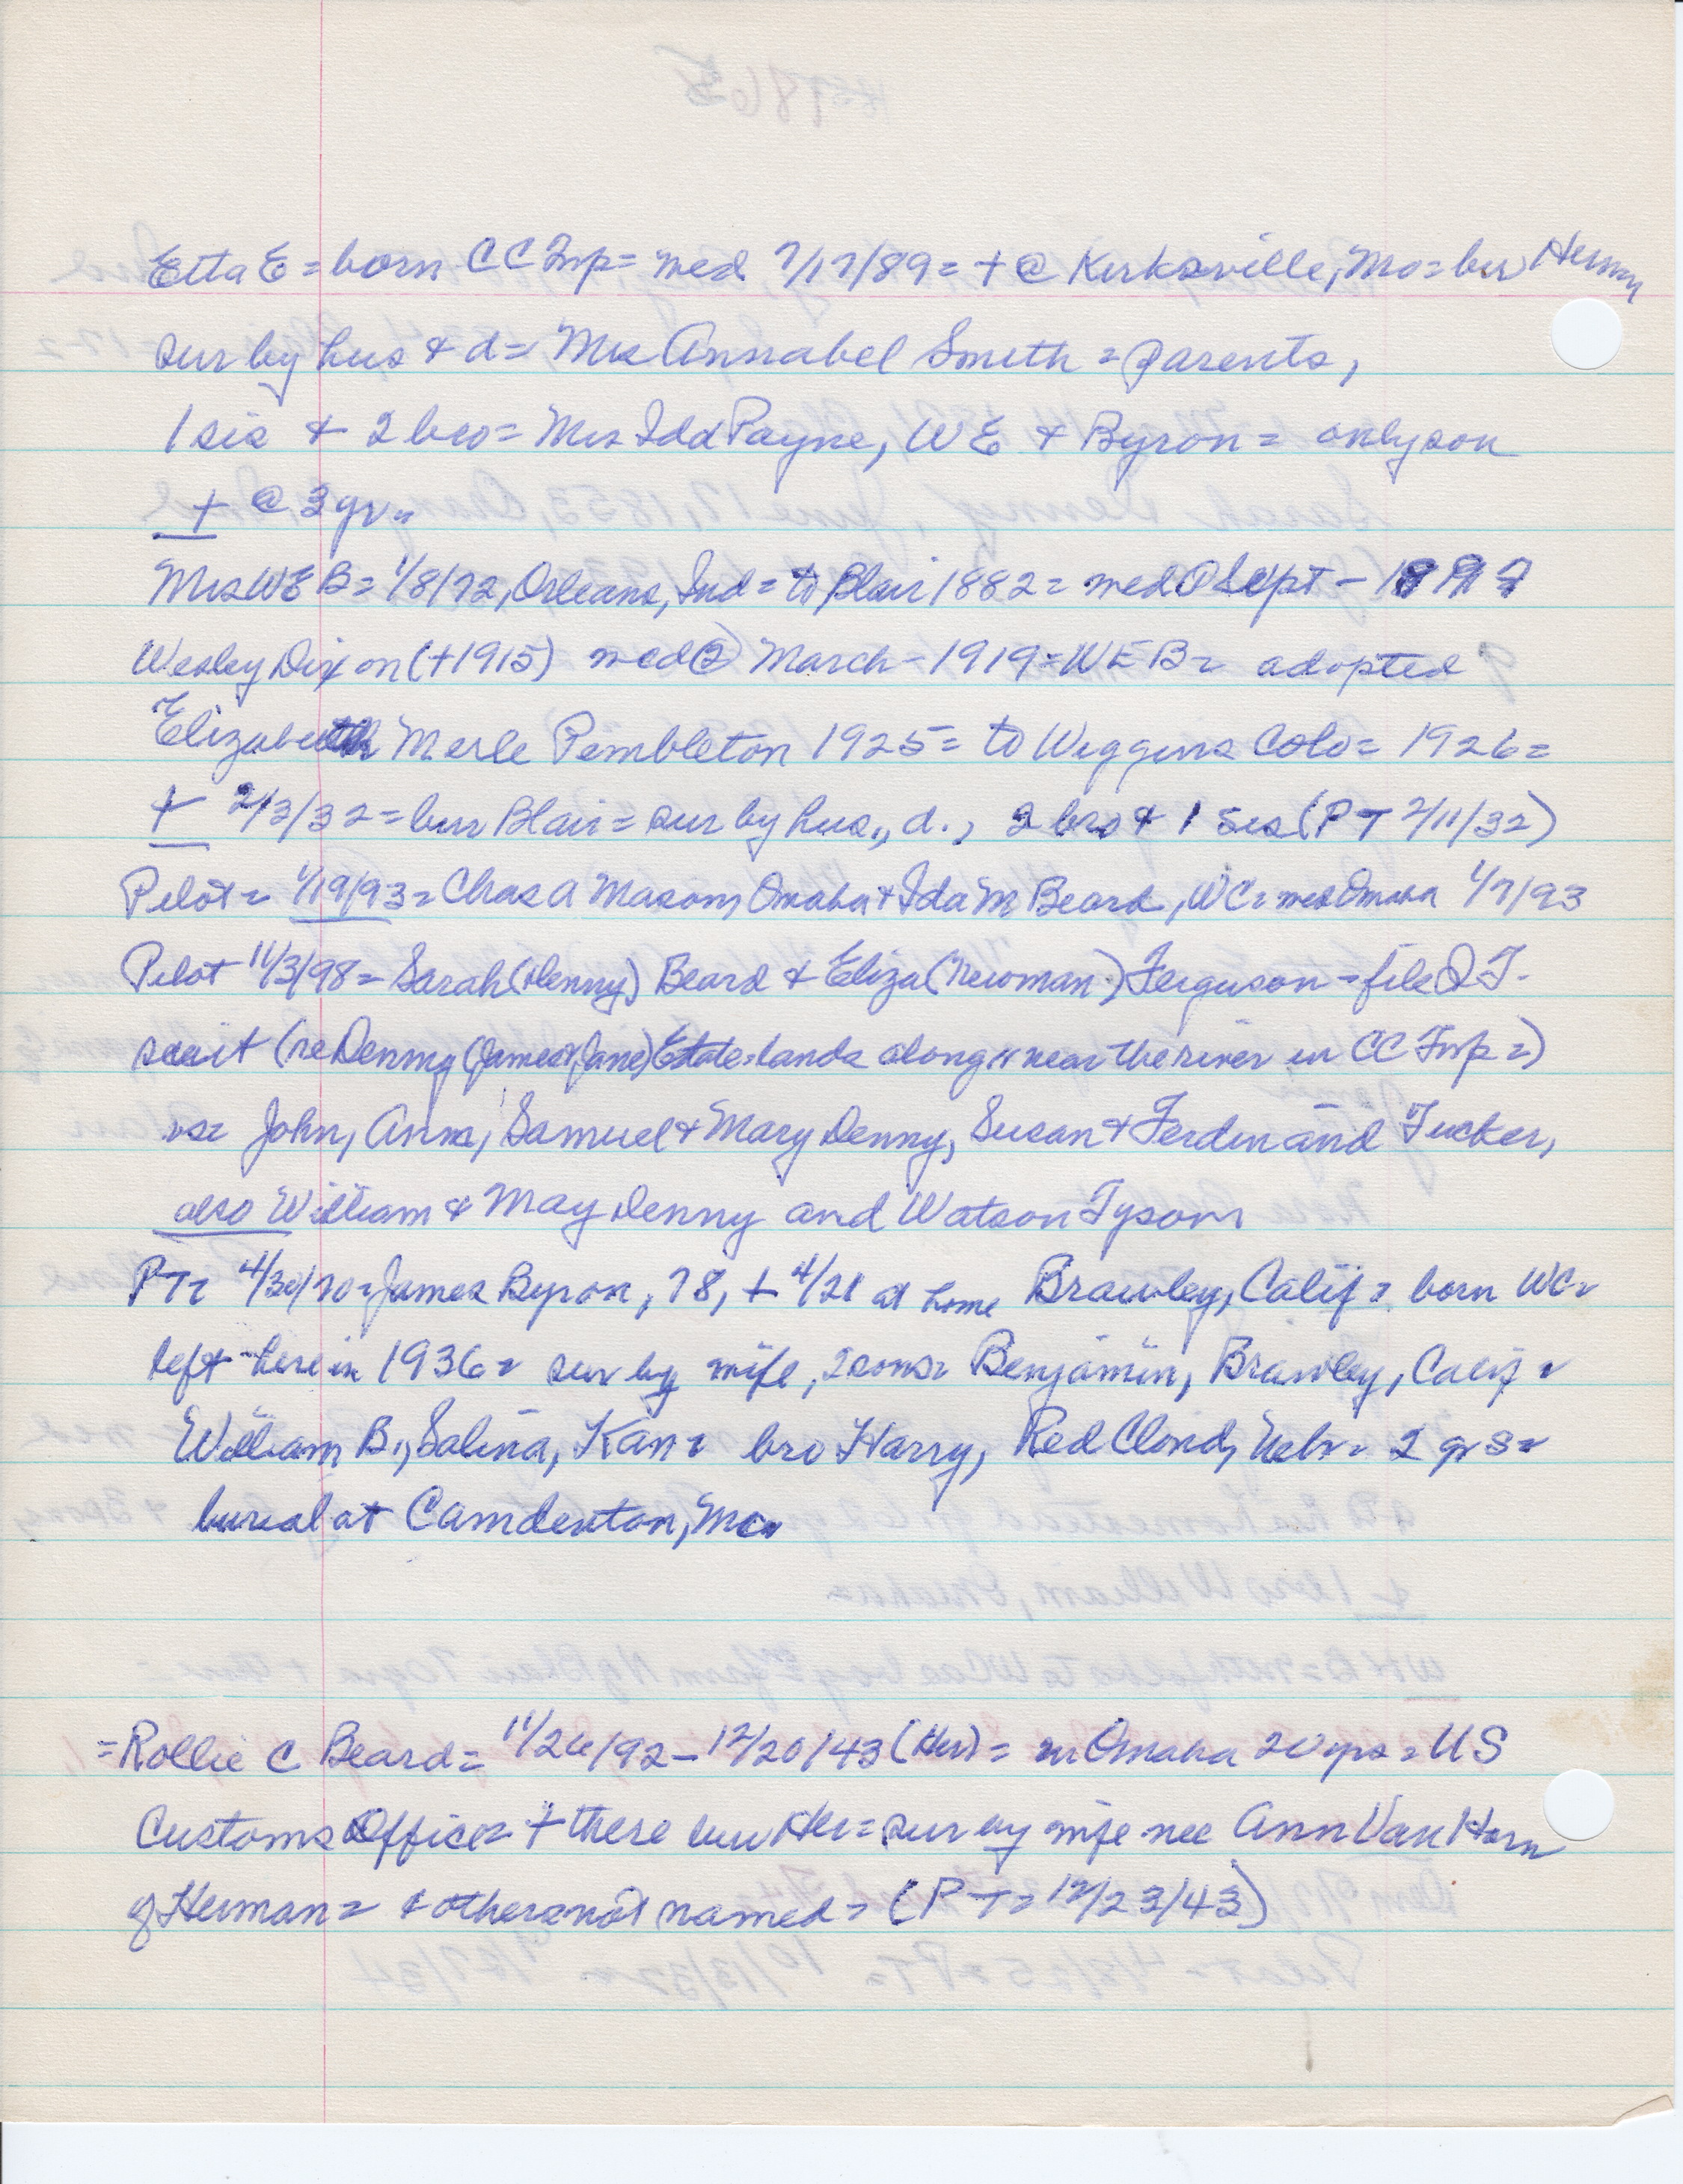 Etta E = born CC Twp = med 7/17/89 = + @ Kirksville, Mo = bur Herman
sur by hus & d = Mrs Annabel Smith = parents,
1 sis & 2 bro = Mrs Ida Payne, WE & Byron = only son
+ @ 3 yr =
Mrs WEB = 1/8/72, Orleans, Ind = to Blair 1882 = med ① Sept - 1897
Wesley Dixon (+1915) med ② March - 1919 = WEB = adopted
Elizabeth Merle Pembleton 1925 = to Wiggins Colo = 1926 =
+ 2/3/32 = bur Blair = sur by hus., d., 2 bro & 1 sis (PT 2/11/32)
Pilot = 1/19/93 = Chas A Mason, Omaha & Ida M Beard, WC = med Omaha 1/7/93
Pilot 11/3/98 = Sarah (Denny) Beard & Eliza (Newman) Ferguson = file Q T.
suit (re Denny (James & Jane) Estate = lands along & near the river in CC Twp =)
vs = John, Anna, Samuel & Mary Denny, Susan & Ferdinand Tucker,
also William & May Denny and Watson Tyson
PT = 4/30/70 = James Byron, 78, + 4/21 at home Brawley, Calif = born WC =
left here in 1936 = sur by wife, 2 sons = Benjamin, Brawley, Calif =
William B., Salina, Kan = bro Harry, Red Cloud, Nebr = 2 gr s =
burial at Camdenton, Mo =
= Rollie C Beard = 11/26/92 - 12/20/43 (Her) = in Omaha 20 yrs = US
Customs Office = + there bur Her = sur by wife nee Ann Van Horn
of Herman = & others not named = (PT = 12/23/43)